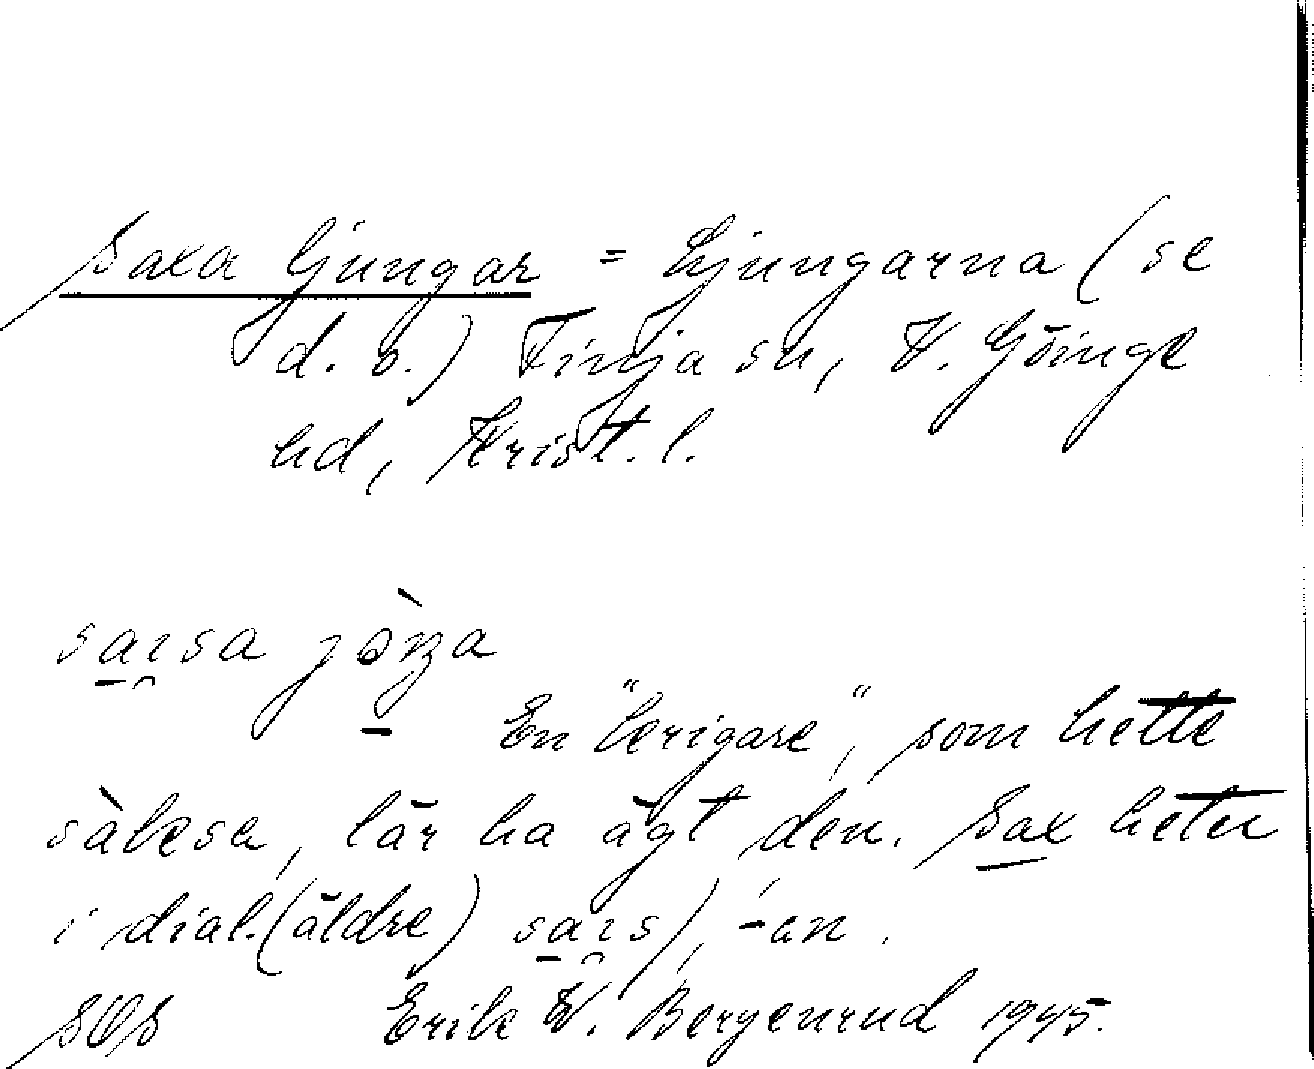 Saxa ljungar = Ljungarna (se
d. o.) Finja sn, V. Göinge
hd, Krist. l.
saısa
En "lerigare", som hette
sàksa, lär ha ägt den. Sax heter
i dial. (äldre) saıs), -an.
SOS Erik W. Bergenrud 1945.